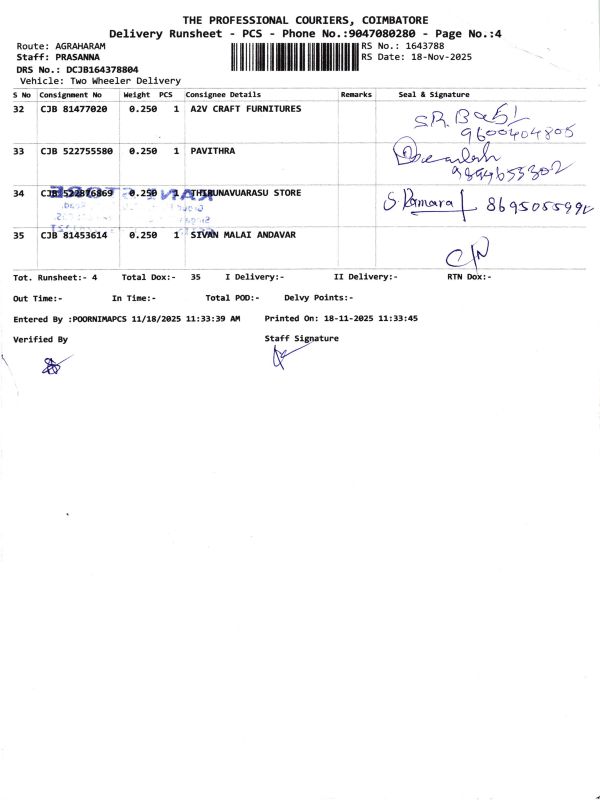 THE PROFESSIONAL COURIERS, COIMBATORE
Delivery Runsheet - PCS - Phone No.:9047080280 - Page No.:4
Route: AGRAHARAM
RS No.: 1643788
Staff: PRASANNA
RS Date: 18-Nov-2025
DRS No.: DCJB164378804
Vehicle: Two Wheeler Delivery
S No Consignment No Weight PCS Consignee Details Remarks Seal & Signature
32 CJB 81477020 0.250 1 A2V CRAFT FURNITURES
9600404805
33 CJB 522755580 0.250 1 PAVITHRA
9894653302
34 CJB 522816869 0.250 1 THIRUNAVUARASU STORE
35 CJB 81453614 0.250 1 SIVAN MALAI ANDAVAR
Tot. Runsheet:- 4 Total Dox:- 35 I Delivery:- II Delivery:- RTN Dox:-
Out Time:- In Time:- Total POD:- Delvy Points:-
Entered By :POORNIMAPCS 11/18/2025 11:33:39 AM Printed On: 18-11-2025 11:33:45
Verified By Staff Signature